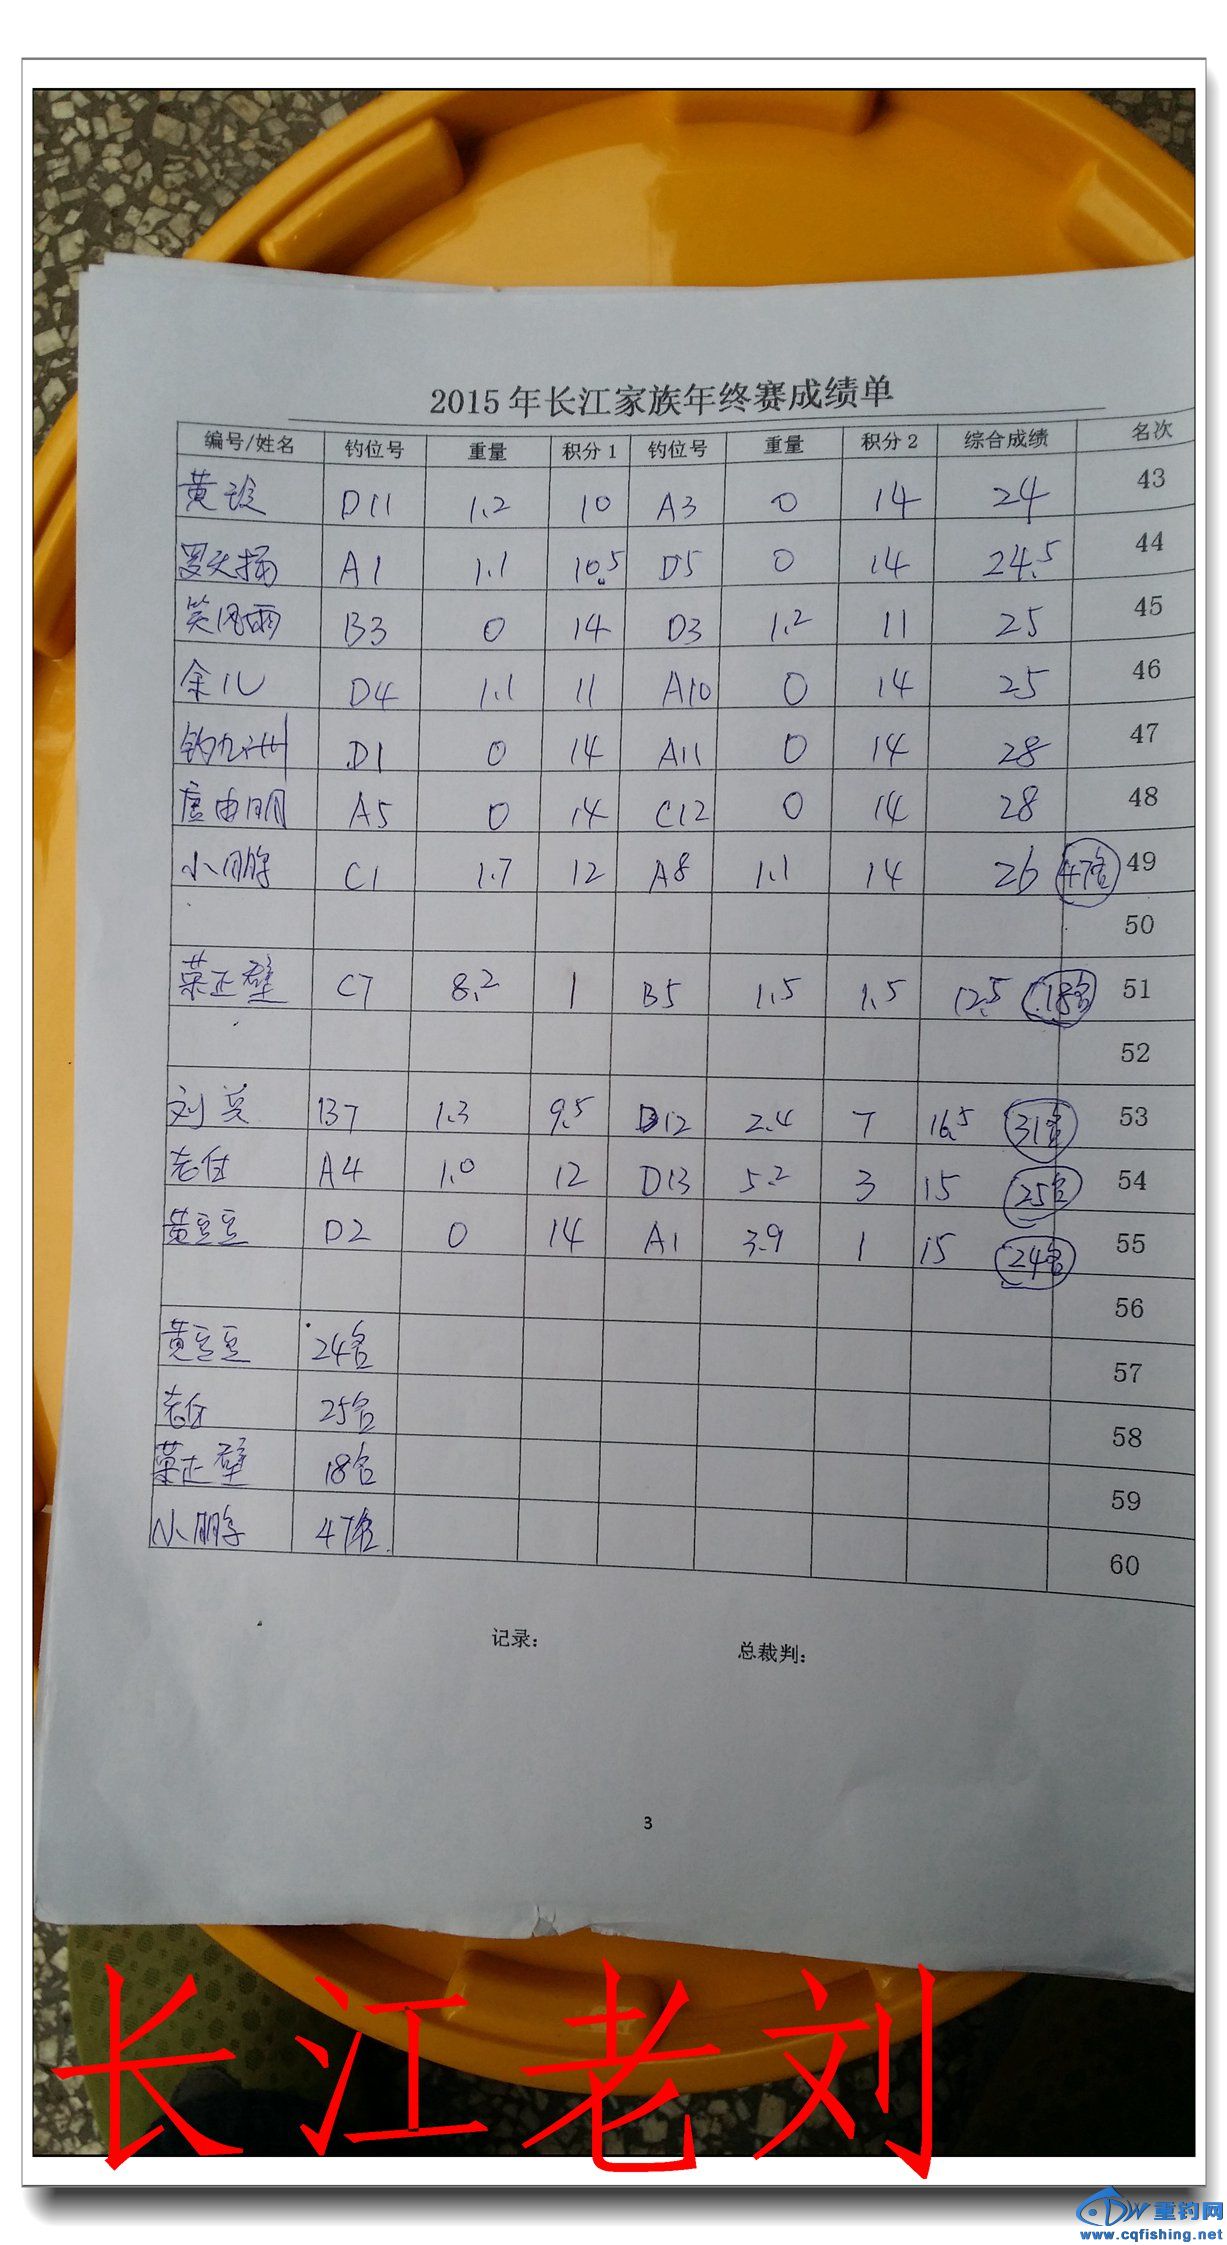 2015年长江家族年终赛成绩单
编号/姓名 钓位号 重量 积分1 钓位号 重量 积分2 综合成绩 名次
黄 D11 1.2 10 A3 0 14 24 43
A1 1.1 10.5 D5 0 14 24.5 44
笑风雨 B3 0 14 D3 1.2 11 25 45
余儿 D4 1.1 11 A10 0 14 25 46
钓九洲 D1 0 14 A11 0 14 28 47
唐由朋 A5 0 14 C12 0 14 28 48
小鹏 C1 1.7 12 A8 1.1 14 26 47名 49
50
菜正壁 C7 8.2 1 B5 1.5 1.5 12.5 18名 51
52
刘英 B7 1.3 9.5 D12 2.4 7 16.5 31名 53
老付 A4 1.0 12 D13 5.2 3 15 25名 54
黄豆豆 D2 0 14 A1 3.9 1 15 24名 55
56
黄豆豆 24名 57
老付 25名 58
菜正壁 18名 59
小鹏 47名 60
记录: 总裁判:
3
长江老刘
重钓网
www.cqfishing.net